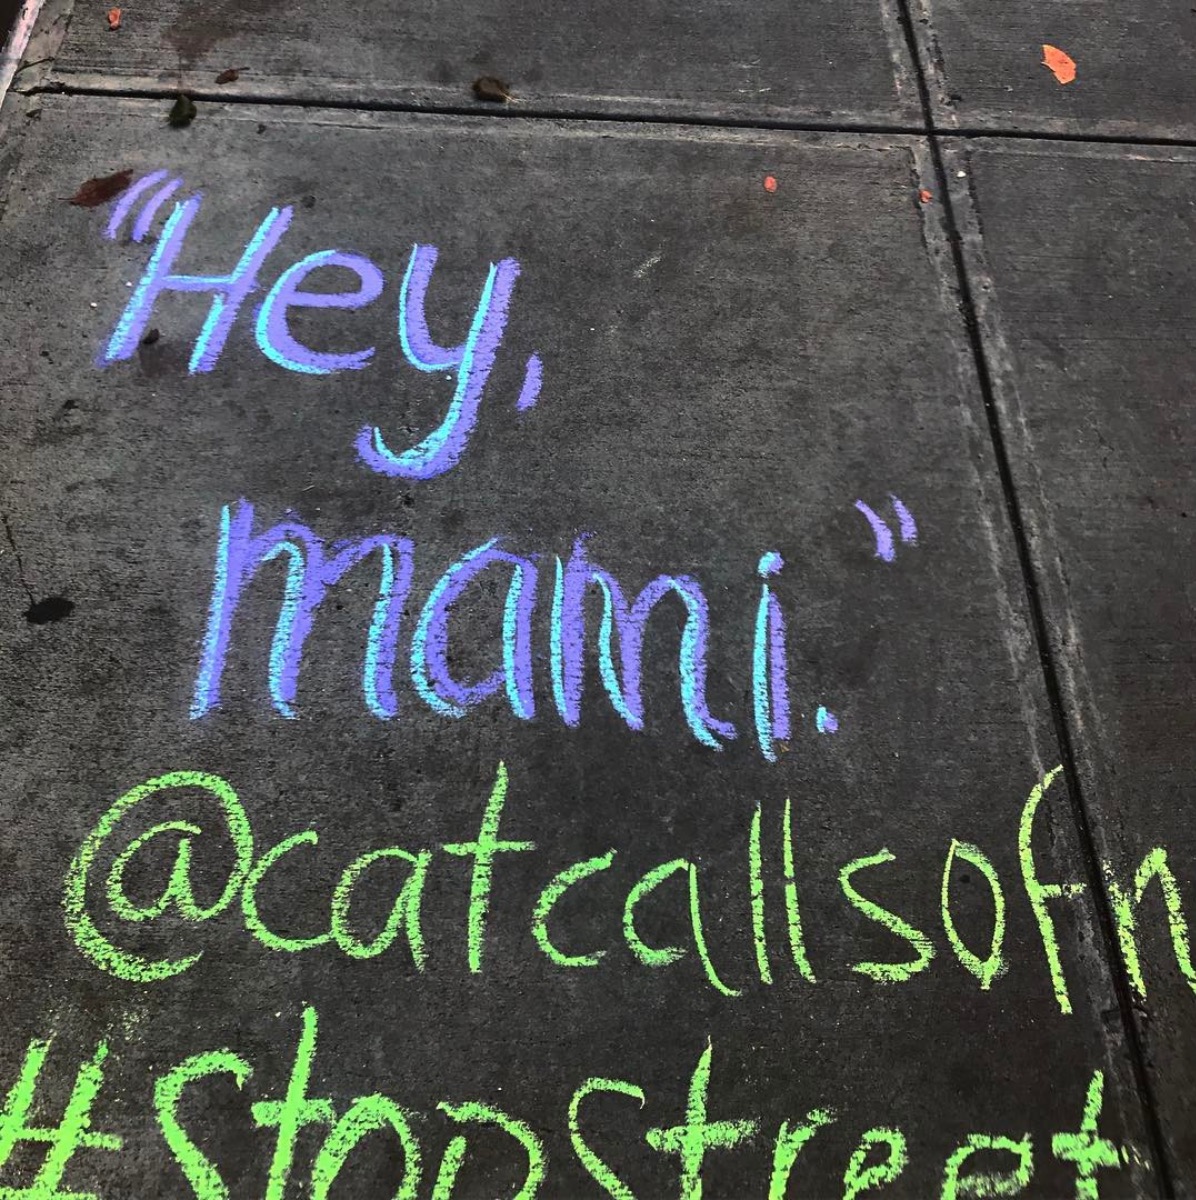 "Hey,
mami."
@catcallsofn
#StopStreet